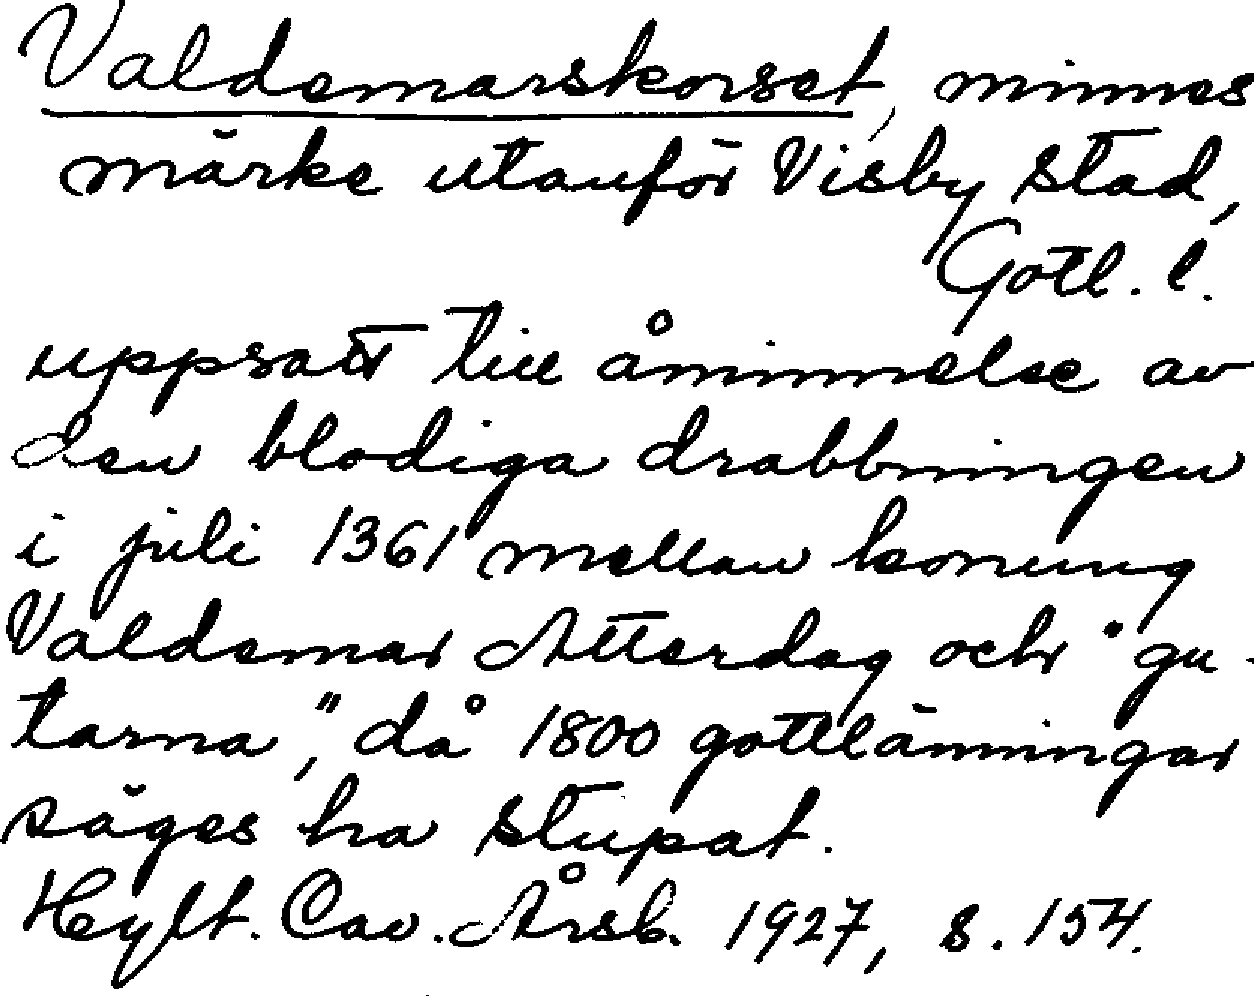 Valdemarskorset, minnes
märke utanför Visby stad,
Gotl. l.
uppsatt till åminnelse av
den blodiga drabbningen
i juli 1361 mellan konung
Valdemar Atterdag och "gu-
tarna," då 1800 gottlänningar
säges ha stupat.
Hylt. Cav. Årsb. 1927, s. 154.